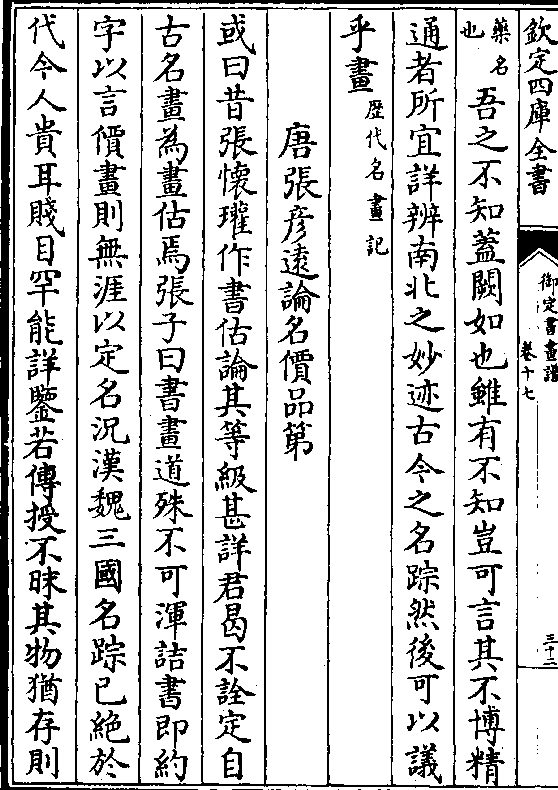 欽定四庫全書
御定書畫譜
卷十七
三十二
藥名
也
吾之不知蓋闕如也雖有不知豈可言其不博精
通者所宜詳辨南北之妙迹古今之名踪然後可以議
乎畫歴代名畫記
唐張彦遠論名價品第
或曰昔張懷瓘作書估論其等級甚詳君曷不詮定自
古名畫為畫估焉張子曰書畫道殊不可渾詰書即約
字以言價畫則無涯以定名況漢魏三國名踪已絶於
代今人貴耳賤目罕能詳鑒若傳授不昧其物猶存則